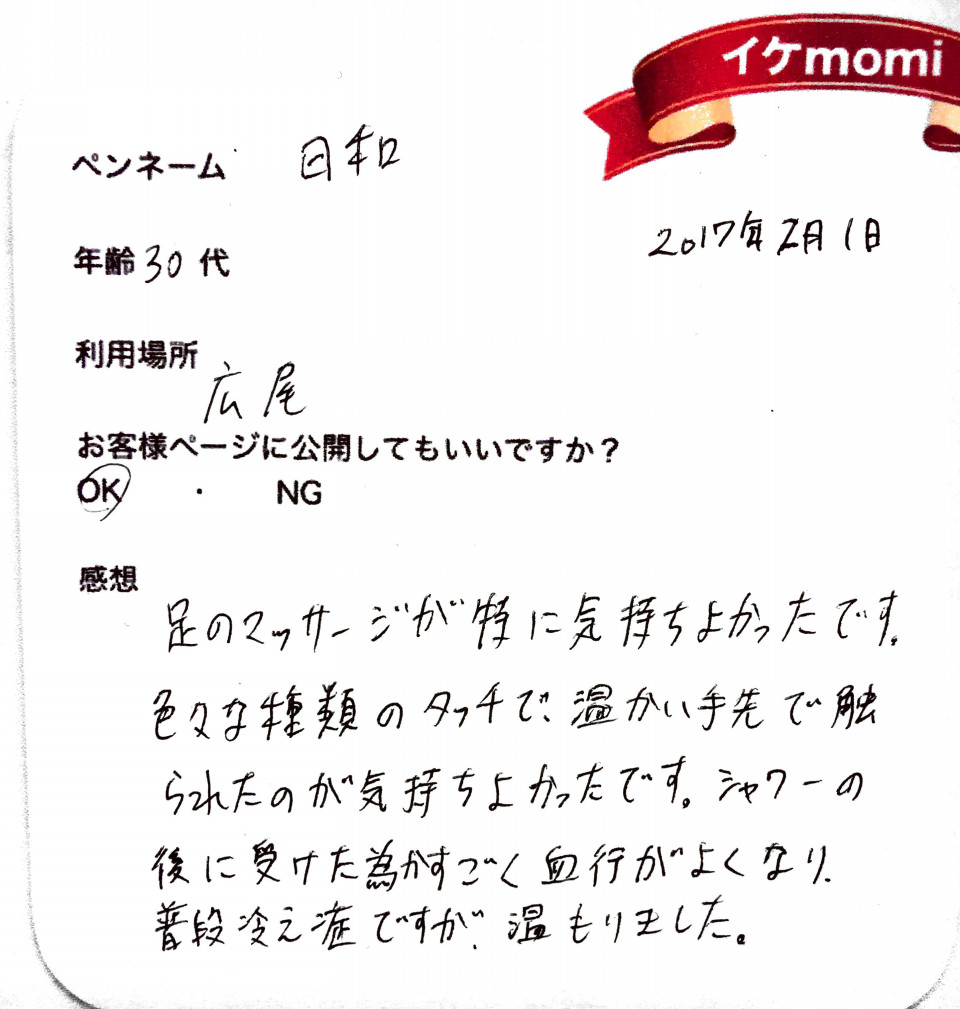 イケmomi
ペンネーム 日和
2017年2月1日
年齢 30 代
利用場所
広尾
お客様ページに公開してもいいですか?
OK ・ NG
感想
足のマッサージが特に気持ちよかったです。
色々な種類のタッチで、温かい手先で触
られたのが気持ちよかったです。シャワーの
後に受けた為かすごく血行がよくなり、
普段冷え症ですが、温もりました。